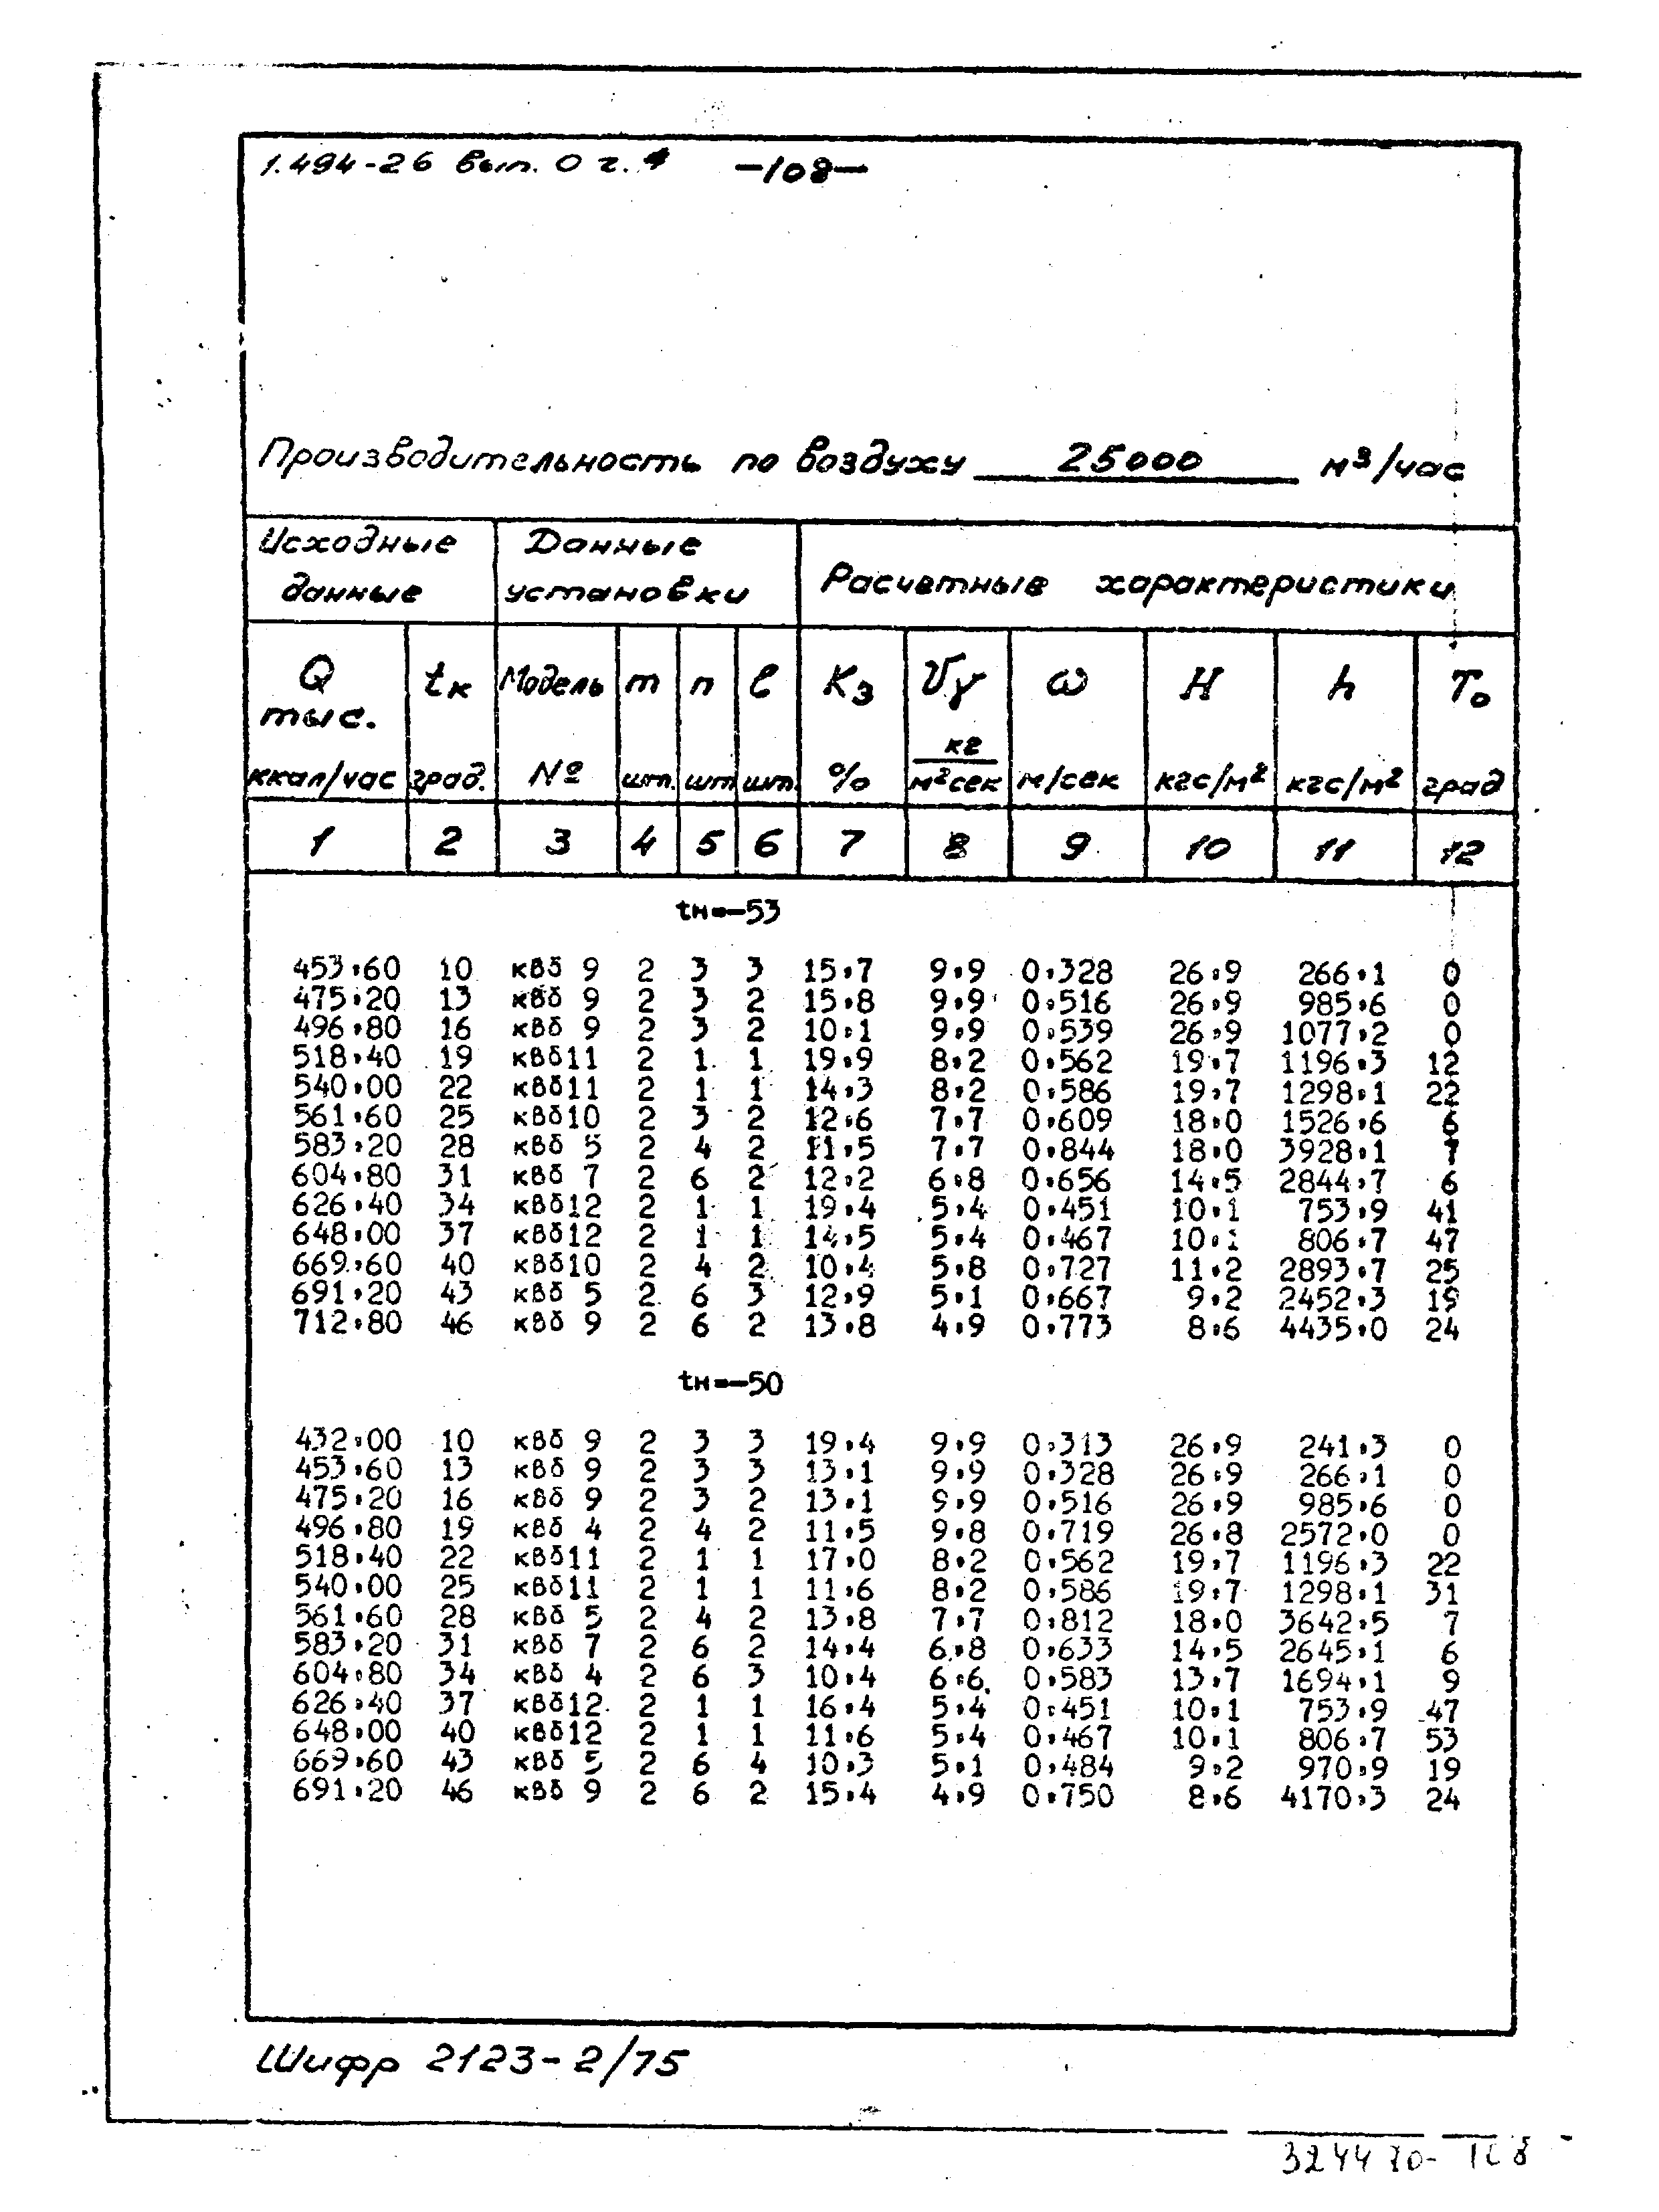 1.494-26 вып. 0 ч. 4 -108-
Производительность по воздуху 25000 м³/час
Исходные данные Данные установки Расчетные характеристики
Q тыс. ккал/час tк град. Модель № m шт. n шт ℓ шт. Kз % Vγ кг/м²сек ω м/сек H кгс/м² h кгс/м² T₀ град
1 2 3 4 5 6 7 8 9 10 11 12
tн=-53
453,60 10 квб 9 2 3 3 15,7 9,9 0,328 26,9 266,1 0
475,20 13 квб 9 2 3 2 15,8 9,9 0,516 26,9 985,6 0
496,80 16 квб 9 2 3 2 10,1 9,9 0,539 26,9 1077,2 0
518,40 19 квб11 2 1 1 19,9 8,2 0,562 19,7 1196,3 12
540,00 22 квб11 2 1 1 14,3 8,2 0,586 19,7 1298,1 22
561,60 25 квб10 2 3 2 12,6 7,7 0,609 18,0 1526,6 6
583,20 28 квб 5 2 4 2 11,5 7,7 0,844 18,0 3928,1 7
604,80 31 квб 7 2 6 2 12,2 6,8 0,656 14,5 2844,7 6
626,40 34 квб12 2 1 1 19,4 5,4 0,451 10,1 753,9 41
648,00 37 квб12 2 1 1 14,5 5,4 0,467 10,1 806,7 47
669,60 40 квб10 2 4 2 10,4 5,8 0,727 11,2 2893,7 25
691,20 43 квб 5 2 6 3 12,9 5,1 0,667 9,2 2452,3 19
712,80 46 квб 9 2 6 2 13,8 4,9 0,773 8,6 4435,0 24
tн=-50
432,00 10 квб 9 2 3 3 19,4 9,9 0,313 26,9 241,3 0
453,60 13 квб 9 2 3 3 13,1 9,9 0,328 26,9 266,1 0
475,20 16 квб 9 2 3 2 13,1 9,9 0,516 26,9 985,6 0
496,80 19 квб 4 2 4 2 11,5 9,8 0,719 26,8 2572,0 0
518,40 22 квб11 2 1 1 17,0 8,2 0,562 19,7 1196,3 22
540,00 25 квб11 2 1 1 11,6 8,2 0,586 19,7 1298,1 31
561,60 28 квб 5 2 4 2 13,8 7,7 0,812 18,0 3642,5 7
583,20 31 квб 7 2 6 2 14,4 6,8 0,633 14,5 2645,1 6
604,80 34 квб 4 2 6 3 10,4 6,6 0,583 13,7 1694,1 9
626,40 37 квб12 2 1 1 16,4 5,4 0,451 10,1 753,9 47
648,00 40 квб12 2 1 1 11,6 5,4 0,467 10,1 806,7 53
669,60 43 квб 5 2 6 4 10,3 5,1 0,484 9,2 970,9 19
691,20 46 квб 9 2 6 2 15,4 4,9 0,750 8,6 4170,3 24
Шифр 2123-2/75